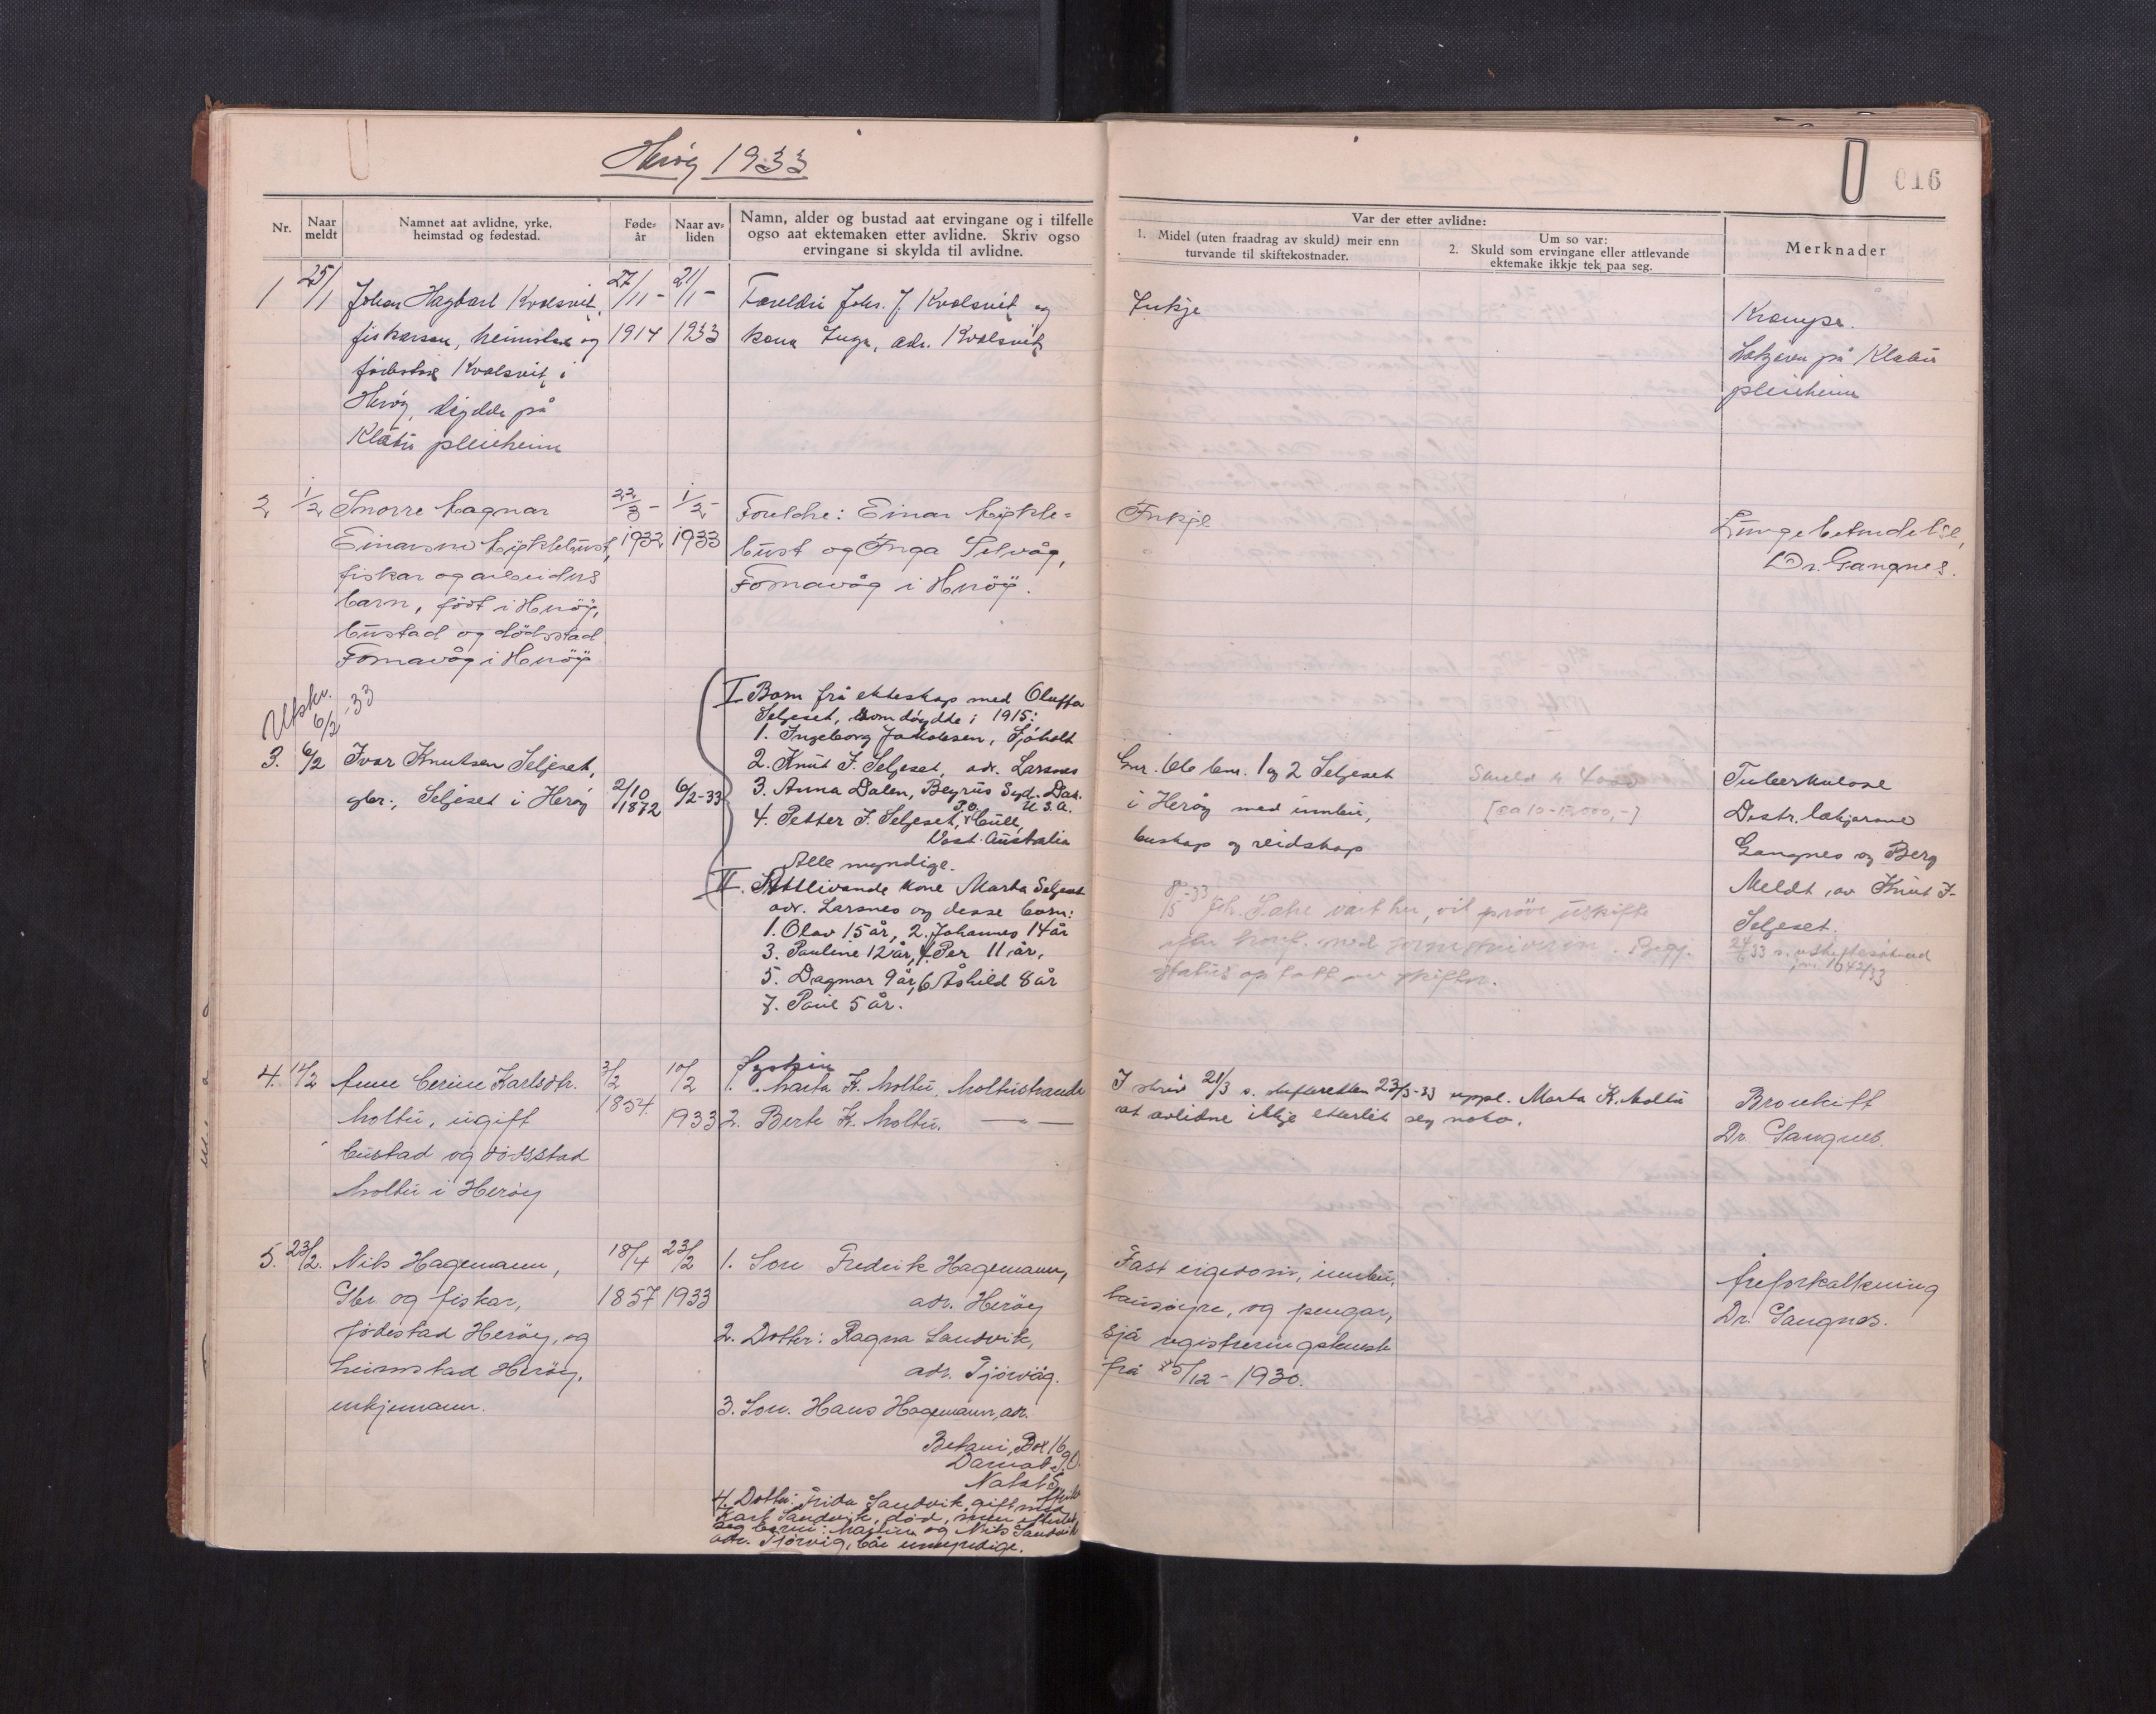 Herøy 1933
016
Nr.
Naar meldt
Namnet aat avlidne, yrke, heimstad og fødestad.
Føde-år
Naar av-liden
Namn, alder og bustad aat ervingane og i tilfelle
ogso aat ektemaken etter avlidne. Skriv ogso
ervingane si skylda til avlidne.
Var der etter avlidne:
1. Midel (uten fraadrag av skuld) meir enn
turvande til skiftekostnader.
Um so var:
2. Skuld som ervingane eller attlevande
ektemake ikkje tek paa seg.
Merknader
1 25/1 Johan Hagbart Kvalsvik, 27/11- 21/1- Foreldri Johs. J. Kvalsvik og
fiskarson, heimstad og 1914 1933 kona Inga, adr. Kvalsvik
fødestad Kvalsvik i
Herøy, døydde på
Klåtu pleieheim
Inkje
Krampe.
Lækjaren på Klåtu
pleieheim
2 1/2 Snorre Magnar 22/3- 1/2- Foreldre: Einar Mykle-
Einarson Myklebust, 1932 1933 bust og Inga Selvåg,
fiskar og arbeidars Fosnavåg i Herøy.
barn, født i Herøy,
bustad og dødsstad
Fosnavåg i Herøy
Inkje
Lungebetendelse,
Dr. Gangnes.
Utskr. 6/2-33
3. 6/2 Ivar Knutsen Seljeset,
gbr., Seljeset i Herøy 2/10 1872 6/2-33
I. Born frå ekteskap med Oluffa
Seljeset, som døydde i 1915:
1. Ingeborg Jakobsen, Sjøholt
2. Knut I. Seljeset, adr. Larsnes
3. Anna Dalen, Syd. Dak.
U.S.A.
4. Petter I. Seljeset, P.O.
Vest Australia
Alle myndige.
II. Attlivande kone Marta Seljeset
adr. Larsnes og desse born:
1. Olav 15 år, 2. Johannes 14 år
3. Pauline 12 år, 4. Per 11 år,
5. Dagmar 9 år, 6. Åshild 8 år
7. Paul 5 år.
Gnr. bnr. 1 og 2 Seljeset
i Herøy med innbu,
buskap og reidskap
Skuld 4000
[ca 10-12,000,-]
8/5-33
status op tatt av skifter.
Tuberkulose
Distr. lækjarane
Gangnes og Berg
Meldt av Knut I.
Seljeset.
4. 14/2 Anne Berine Karlsdtr. 3/2 10/2 Syskin
Moltu, ugift 1854 1933 1. Marta K. Moltu, Moltustranda
bustad og dødsstad 2. Berte K. Moltu. — " —
Moltu i Herøy
I skriv 21/3 s. skifteretten 23/3-33 uppl. Marta K. Moltu
at avlidne ikkje etterlet seg noko.
Bronkitt
Dr. Gangnes.
5. 23/2. Nils Hagemann, 18/4 23/2 1. Son Fredrik Hagemann,
Gbr. og fiskar, 1857 1933 adr. Herøy
fødestad Herøy, og 2. Dotter: Ragna Sandvik,
heimstad Herøy, adr. Tjørvåg.
enkjemann. 3. Son. Hans Hagemann, adr.
Betani, Box 16
Natal S.
4. Dotter: Frida Sandvik, gift med
Karl Sandvik, død, men etterlet
seg born: og Nils Sandvik
adr. Tjørvåg, bae umyndige.
Fast eigedom, innbu,
lausøyre, og pengar,
sjå registreringsbrevk
frå 5/12 - 1930.
Åreforkalkning
Dr. Gangnes.